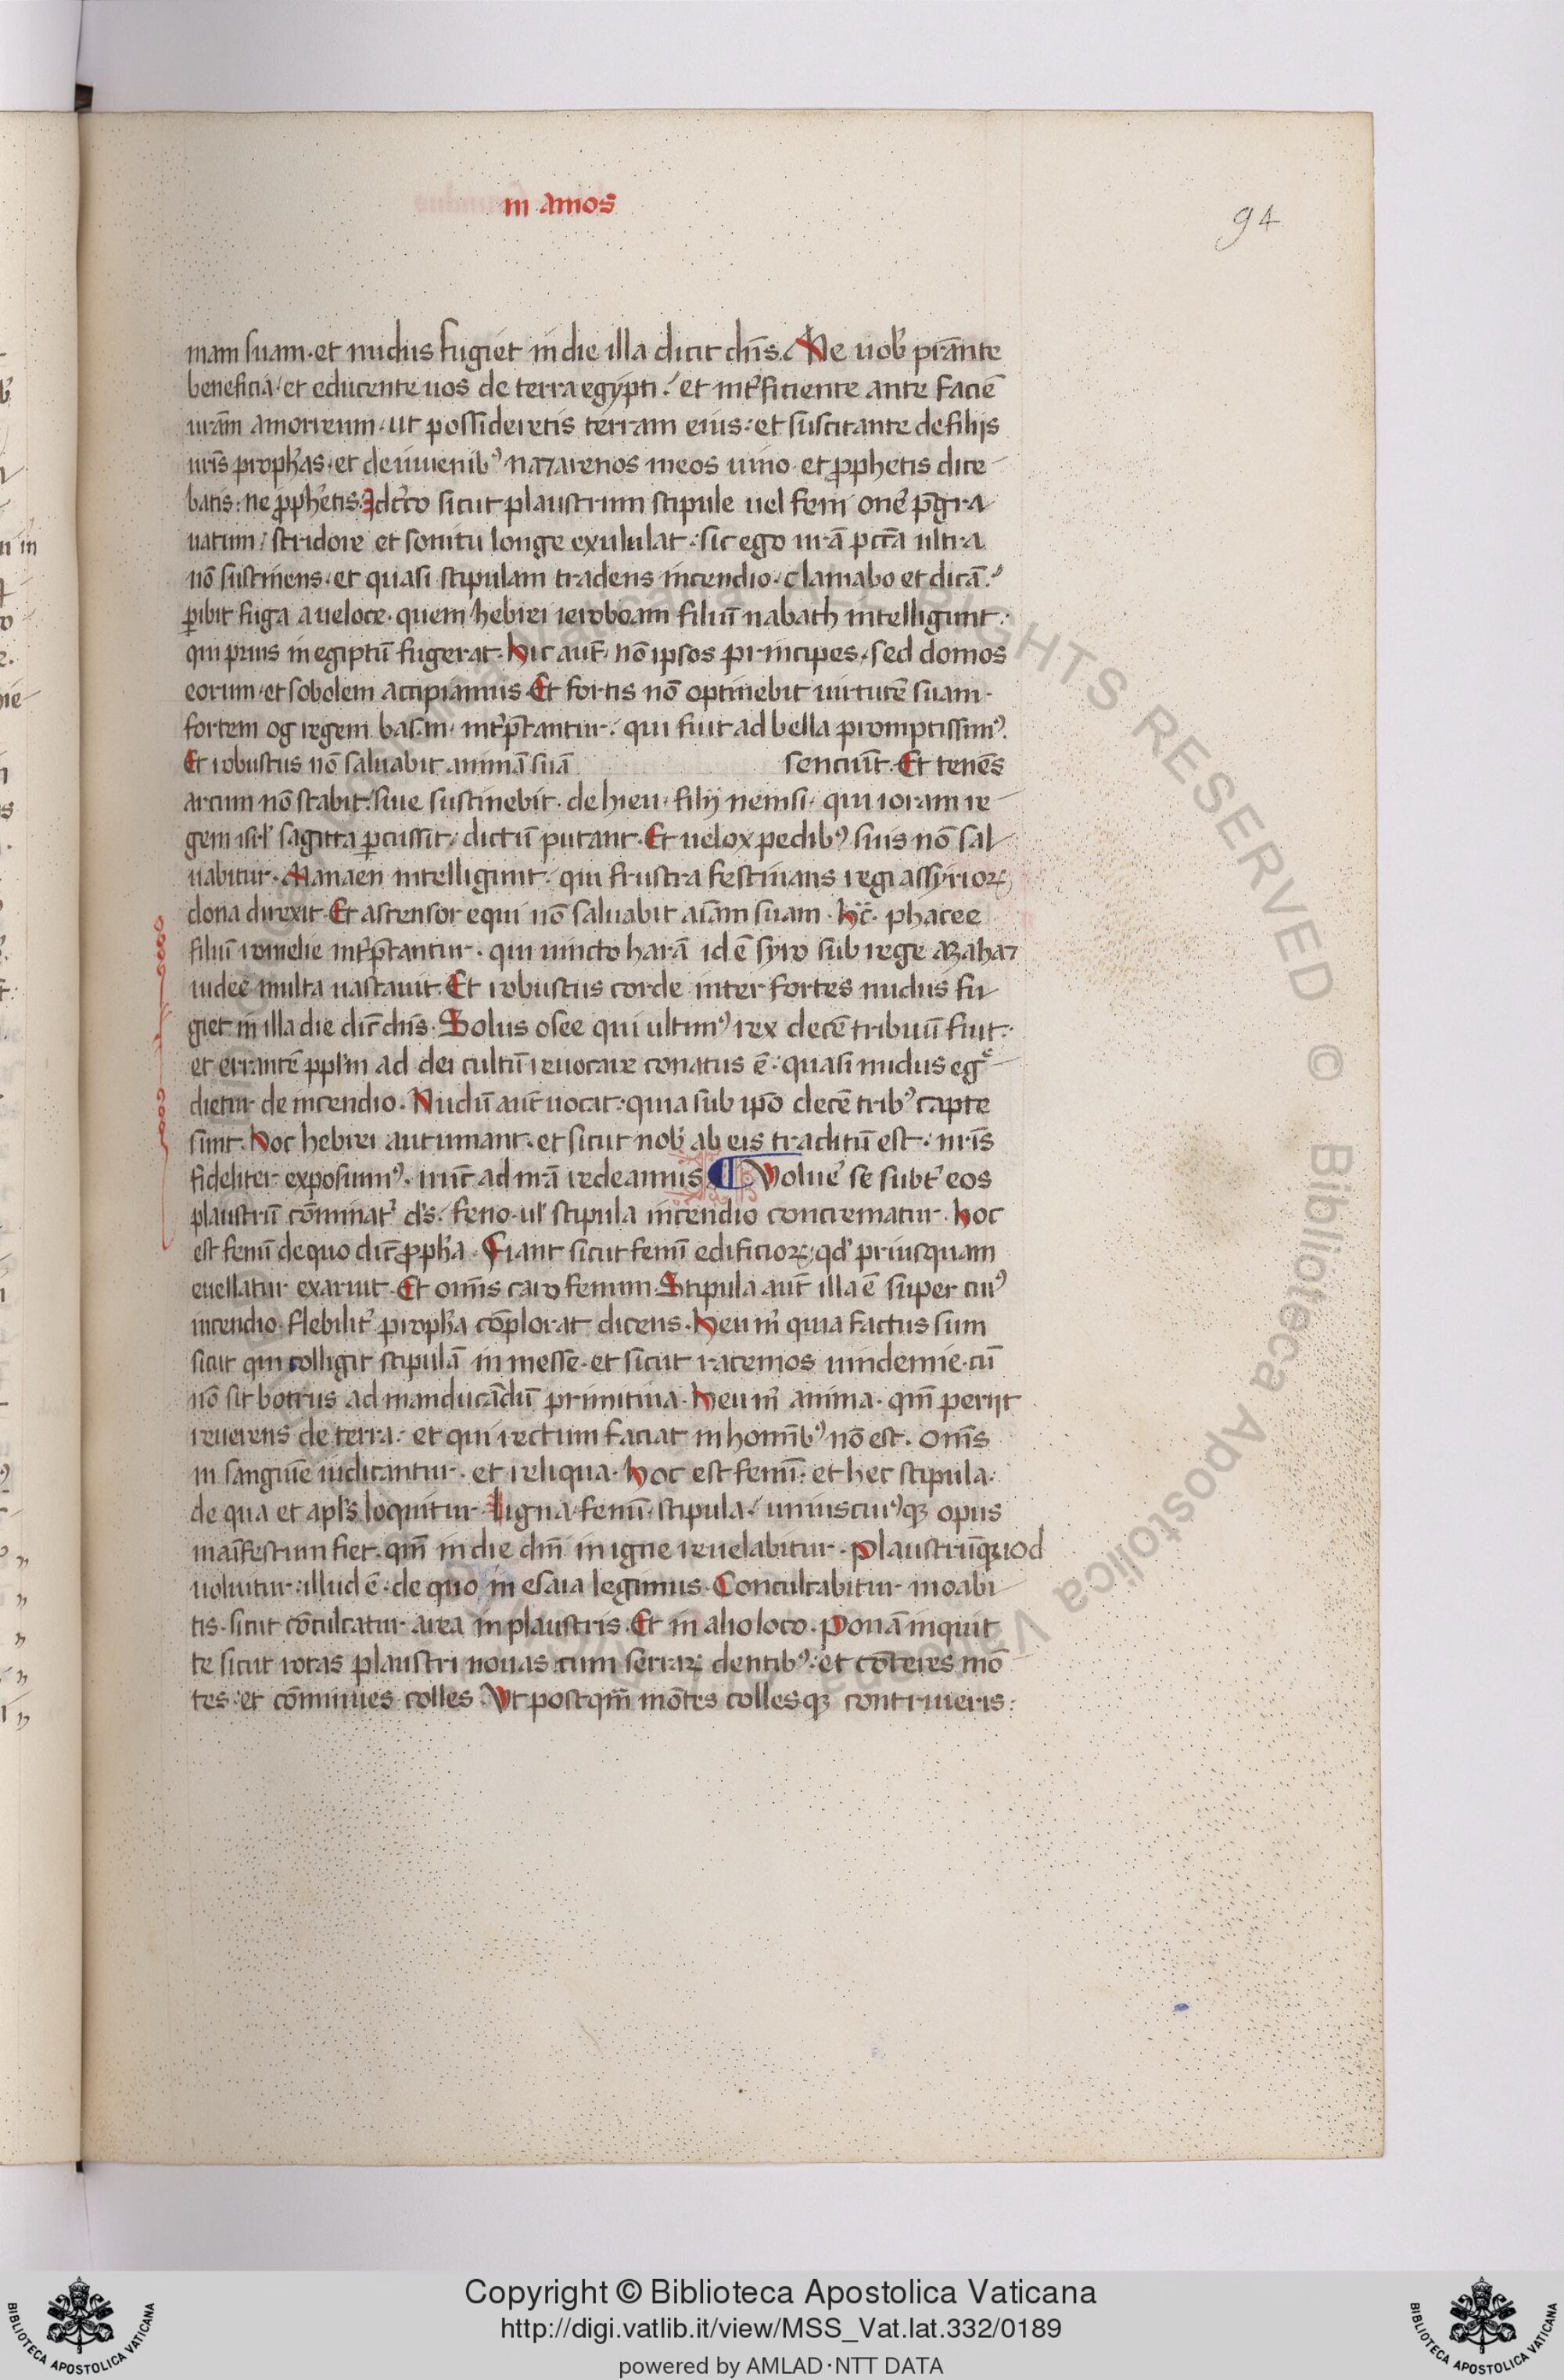 in amos
94
mam suam· et nudus fugiet in die illa dicit dn̄s. Me uob̕ prāīnte
beneficia· et educente uos de terra egypti· et int̕ficiente ante faciē
urām amorreum· ut possideretis terram eius: et suscitante de filijs
uris proph̕as· et de iuuenib᾽ nazarenos meos uino· et ꝓphetis dice
batis: ne ꝓph̕etis. Idcr̕co sicut plaustrum stipule uel feni one᾽ p̄gra
uatum· stridore et sonitu longe exululat· sic ego ur̄ā pcc̄ā ultra
nō sustinens· et quasi stipulam tradens incendio· clamabo et dicā·
ꝑibit fuga a ueloce· quem hebrei ieroboam filiū nabath intelligunt·
qui prius in egiptū fugerat. Hic aut̄ nō ipsos principes· sed domos
eorum· et sobolem accipiamus. Et fortis nō optinebit uirtutē suam·
fortem og regem basan· int̕p̄tantur· qui fuit ad bella promptissim᾽.
Et robustus nō saluabit animā suā sencīunt. Et tenēs
arcum nō stabit· siue sustinebit· de hieu· filij nemsi· qui ioram re
gem isr̕l sagitta ꝑcussit· dictū putant. Et uelox pedib᾽ suis nō sal
uabitur. Manaen intelligunt· qui frustra festinans regi assyrioꝝ
dona direxit. Et ascensor equi nō saluabit aīam suam. Hc̄· phacee
filiū romelie int̕p̄tantur· qui iuncto harā id ē syro sub rege azahaz
iudeē multa uastauit. Et robustus corde inter fortes nudus fu
giet in illa die dic̄ dn̄s. Solus osee qui ultim᾽ rex decē tribuū fuit·
et errantē ppl̕m ad dei cultū reuocare conatus ē· quasi nudus egͤ
dietur de incendio. Nudū aut̄ uocat· quia sub ip̄o decē trib᾽ capte
sunt. Hoc hebrei autumant· et sicut nob̕ ab eis traditū est· nr̄īs
fideliter exposuim᾽· nūc ad nr̄ā redeamus. ¶ Volue᾽ se subt̕ eos
plaustrū cōminat̕ ds̕· feno· ul̕ stipula incendio concrematur. Hoc
est fenū de quo dic̄ ꝓph̕a. Fiant sicut fenū edificioꝝ· qd̕ priusquam
euellatur exaruit. Et om̄is caro fenum. Stipula aut̄ illa ē super cui᾽
incendio flebilit̕ proph̕a cōplorat dicens. Heu m̕ quia factus sum
sicut qui colligit stipulā in messe· et sicut racemos uindemie· cū
nō sit botrus ad manducādū primitiua. Heu m̕ anima· qm̄ perijt
reuerens de terra· et qui rectum faciat in homīb᾽ nō est. Om̄s
in sanguīe iudicantur· et reliqua. Hoc est fenū· et hec stipula·
de qua et apl̕s loquitur. Ligna· fenū· stipula· uniuscui᾽qꝫ opus
manīfestum fiet· qm̄ in die dn̄i in igne reuelabitur. Plaustrū quod
uoluitur illud ē· de quo in esaia legimus. Conculcabitur moabi
tis· sicut cōculcatur area in plaustris. Et in alio loco. Ponā inquit
te sicut rotas plaustri nouas cum serraꝝ dentib᾽· et cōteres mō
tes· et cōminues colles. Vt postqm̄ mōtes collesqꝫ contriueris:
Copyright © Biblioteca Apostolica Vaticana
http://digi.vatlib.it/view/MSS_Vat.lat.332/0189
powered by AMLAD·NTT DATA